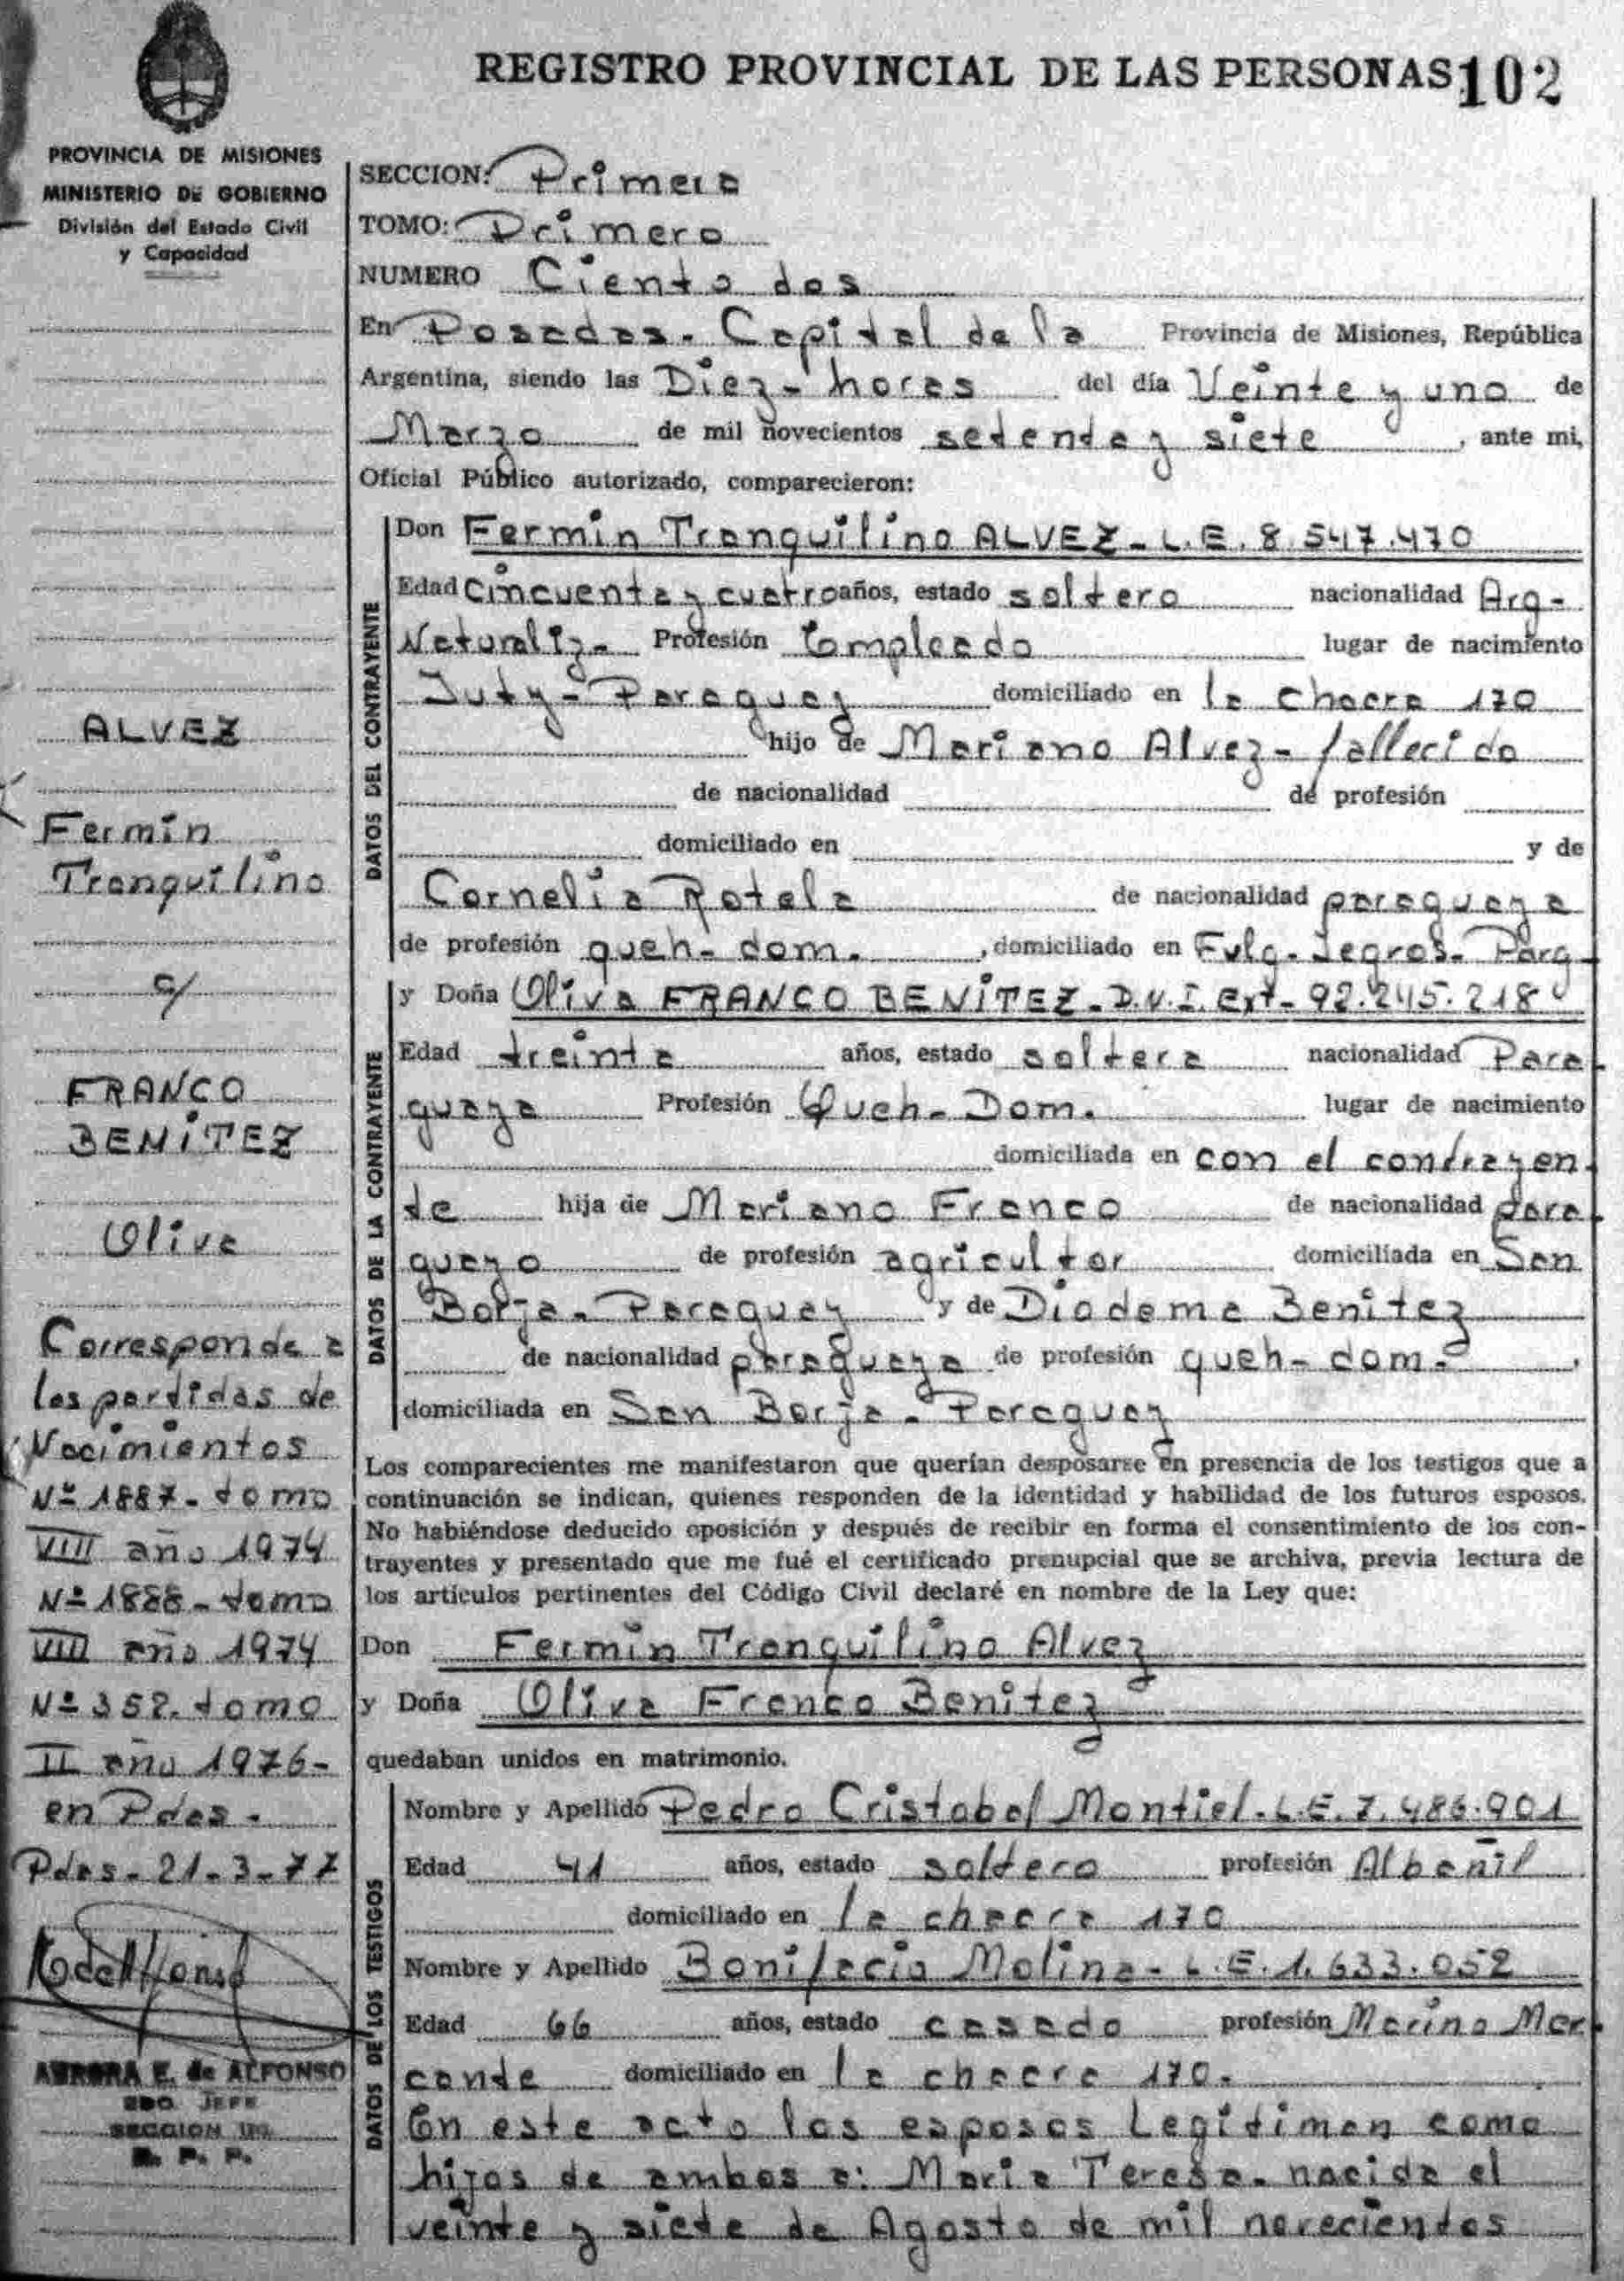 REGISTRO PROVINCIAL DE LAS PERSONAS 102
PROVINCIA DE MISIONES
MINISTERIO DE GOBIERNO
División del Estado Civil
y Capacidad
ALVEZ
Fermín
Tranquilino
c/
FRANCO
BENÍTEZ
Oliva
Corresponde a
las partidas de
Nacimientos
Nº 1887- tomo
VIII año 1974
Nº 1888- tomo
VIII año 1974
Nº 352. tomo
II año 1976-
en Pdas-
Pdas- 21-3-77
AURORA E. de ALFONSO
2DO. JEFE
SECCION 1RA.
R. P. P.
SECCION: Primera
TOMO: Primero
NUMERO Ciento dos
En Posadas- Capital de la Provincia de Misiones, República
Argentina, siendo las Diez- horas del día Veinte y uno de
Marzo de mil novecientos setenta y siete, ante mi,
Oficial Público autorizado, comparecieron:
DATOS DEL CONTRAYENTE
Don Fermín Tranquilino ALVEZ- L.E. 8.547.470
Edad cincuenta y cuatro años, estado soltero nacionalidad Arg-
Naturaliz- Profesión Empleado lugar de nacimiento
Yuty- Paraguay domiciliado en la chacra 170
hijo de Mariano Alvez- fallecido
de nacionalidad de profesión
domiciliado en y de
Cornelia Rotela de nacionalidad paraguaya
de profesión queh- dom. , domiciliado en Fulg- Yegros- Parg
DATOS DE LA CONTRAYENTE
y Doña Oliva FRANCO BENÍTEZ- D.N.I. ext- 92.245.218
Edad treinta años, estado soltera nacionalidad Para
guaya Profesión Queh- Dom. lugar de nacimiento
domiciliada en con el contrayen
te hija de Mariano Franco de nacionalidad para
guayo de profesión agricultor domiciliada en San
Borja- Paraguay y de Diodema Benítez
de nacionalidad paraguaya de profesión queh- dom-
domiciliada en San Borja- Paraguay
Los comparecientes me manifestaron que querían desposarse en presencia de los testigos que a
continuación se indican, quienes responden de la identidad y habilidad de los futuros esposos.
No habiéndose deducido oposición y después de recibir en forma el consentimiento de los con-
trayentes y presentado que me fué el certificado prenupcial que se archiva, previa lectura de
los artículos pertinentes del Código Civil declaré en nombre de la Ley que:
Don Fermín Tranquilino Alvez
y Doña Oliva Franco Benítez
quedaban unidos en matrimonio.
DATOS DE LOS TESTIGOS
Nombre y Apellido Pedro Cristobal Montiel- L.E. 7.486.901
Edad 41 años, estado soltero profesión Albañil
domiciliado en la chacra 170
Nombre y Apellido Bonifacio Molina- L.E. 1.633.052
Edad 66 años, estado casado profesión Marino Mer
cante domiciliado en la chacra 170.
En este acto los esposos Legitiman como
hijos de ambos a: María Teresa- nacida el
veinte y siete de Agosto de mil novecientos